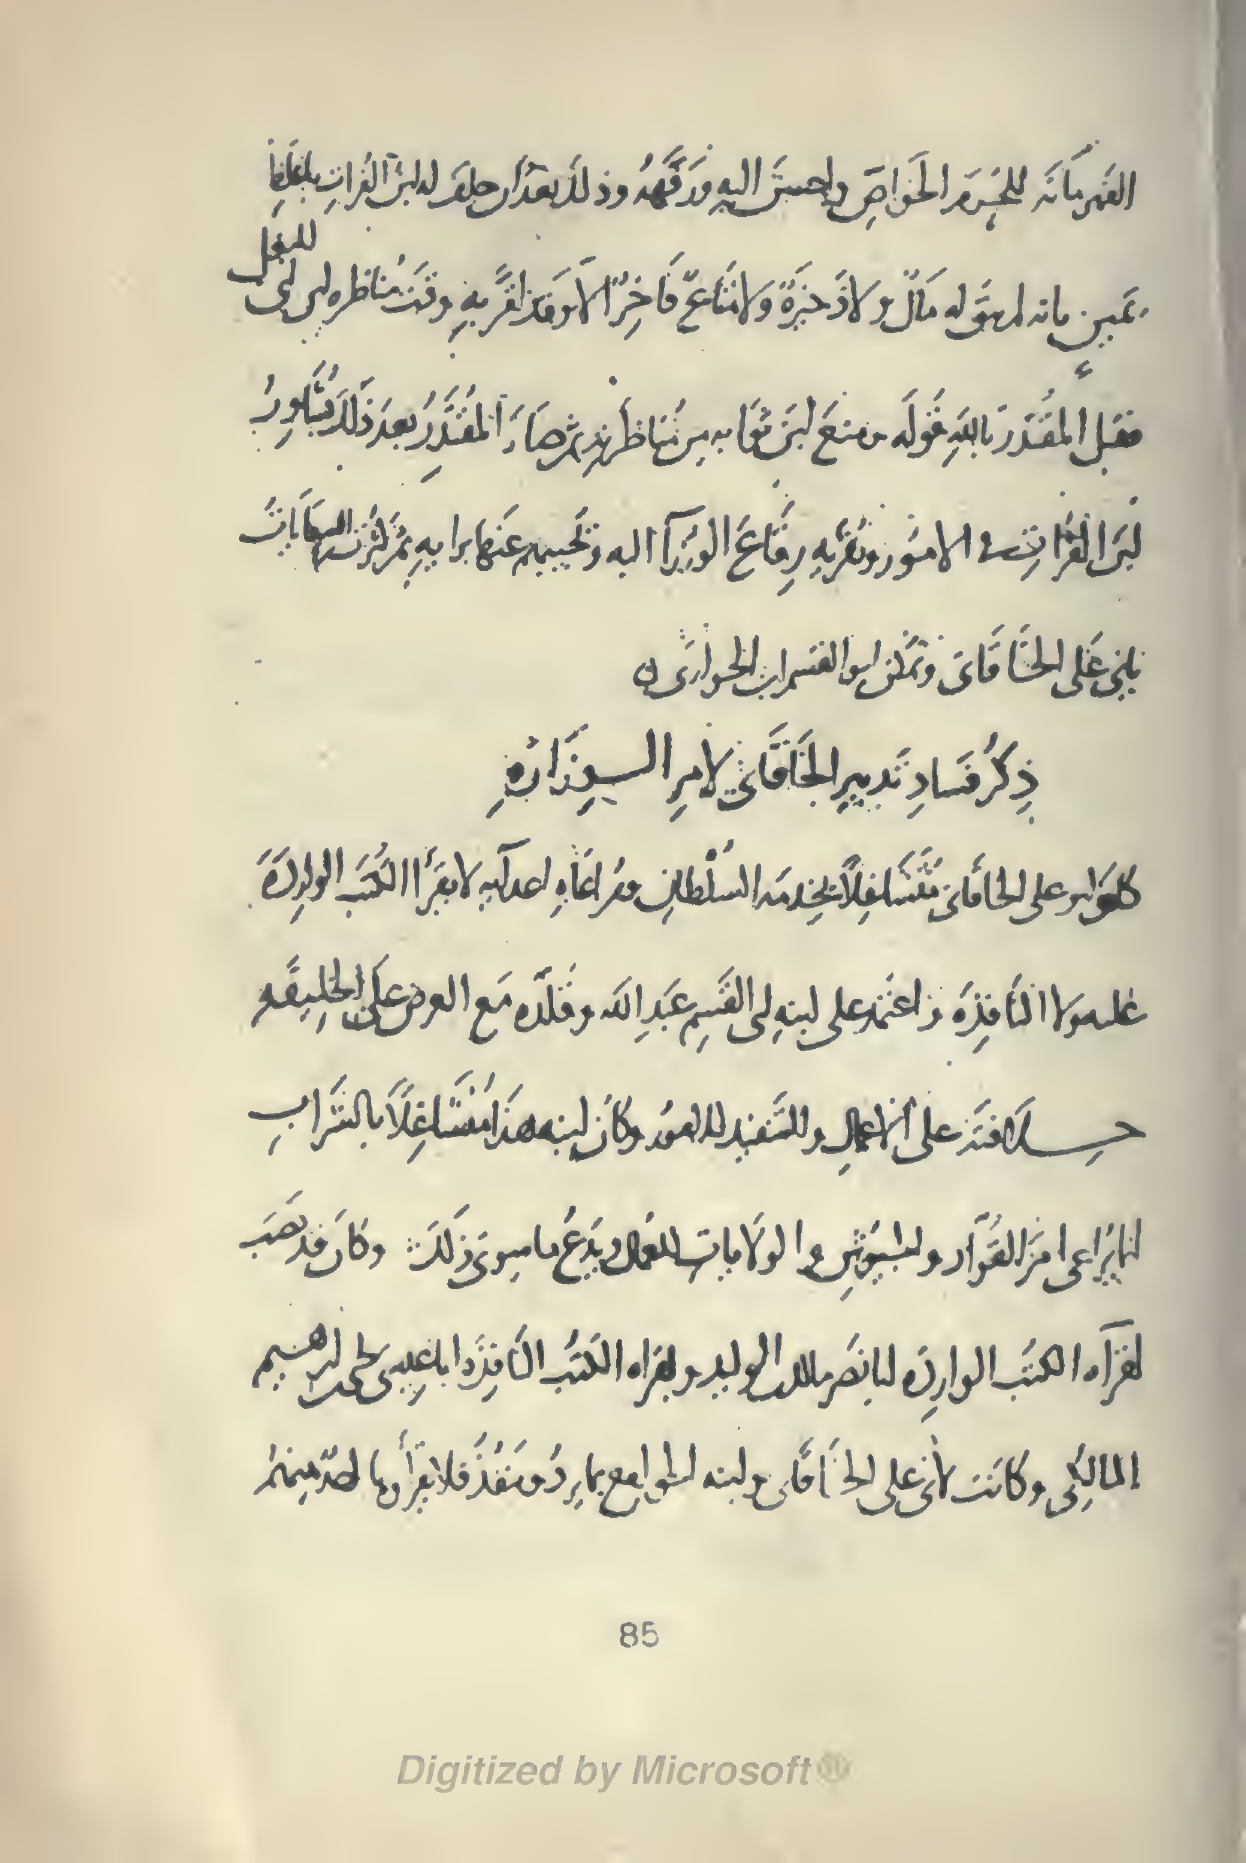 القهرمانة للحرم الخواص واحسن اليه ورفهه وذلك بعد ان حلف له ابن الفرات باغلظ
يمين بانه لم يبق له مال ولا ذخيرة ولا متاع فاخر الا وقد اقر به وقت مناظره ابي علي
فقبل المقتدر بالله قوله ومنع ابن ثوابه من مناظرته ثم صار المقتدر بعد ذلك يشاور
ابن الفرات في الامور ويقريه رقاع الوزرآ اليه ويجيبهم عنها برايه ثم كثرت السعايات
بابي على الخاقاني وتمكن ابو القسم ابن الحواري
ذكر فساد تدبير الخاقاني لامر الوزاره
كان ابو على الخاقاني متشاغلا بخدمه السلطان ومراعاه اعدآيه لا يقرأ الكتب الواردة
عليه ولا النافذة واعتمد على ابنه ابى القسم عبد الله وقلده مع العرض على الخليفه
خلافته على الاعمال والتنفيذ للامور وكان ابنه هذا متشاغلا بالشراب
انما يراعى امر القواد والجيوش والولايات للعمال ويدع ما سوى ذلك وكان قد نصب
لقرآه الكتب الوارده ابا نصر ملك الوليد ولقراه الكتب النافذه ابا عيسى يحيى ابن ابرهيم
المالكي وكانت لابي على الخاقاني وابنه الجوامع بما يرد وينفذ فلا يقرأ وبها احد منهم
85
Digitized by Microsoft®